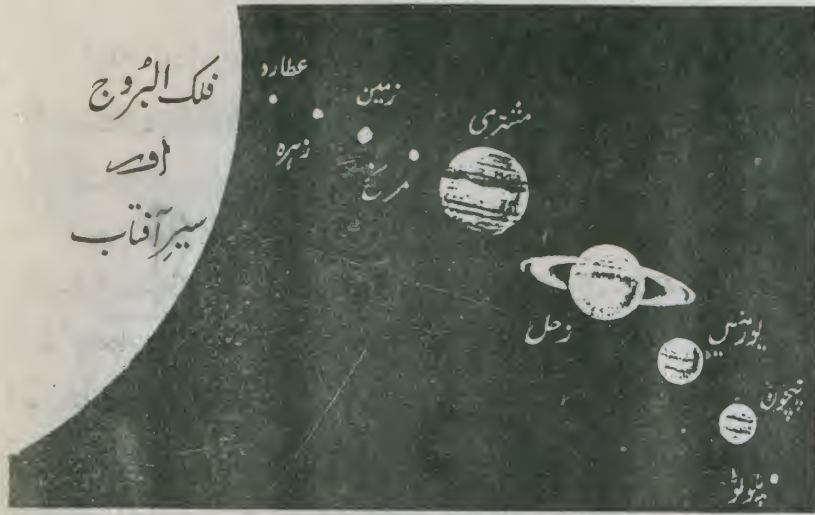 فلک البُروج
اور
سیرِ آفتاب
عطارد
زہرہ
زمین
مریخ
مشتری
زحل
یورینس
نیپچون
پلوٹو